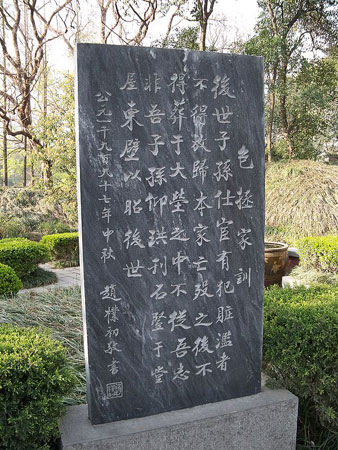 包拯家訓
後世子孫仕宦有犯贓濫者
不得放歸本家亡殁之後不
得葬于大塋之中不從吾志
非吾子孫仰珙刊石竪于堂
屋東壁以昭後世
公元一千九百九十七年中秋 趙樸初敬書